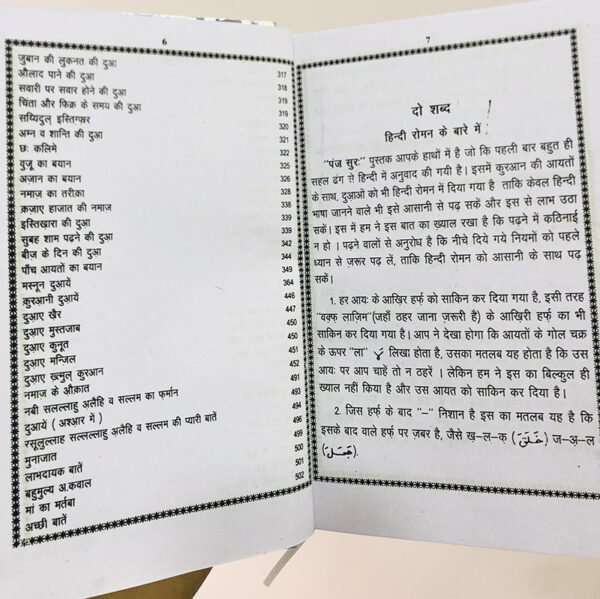 6
जुबान की लुकनत की दुआ
औलाद पाने की दुआ 317
सवारी पर सवार होने की दुआ 318
चिंता और फिक्र के समय की दुआ 319
सय्यिदुल इस्तिग्फ़ार 319
अम्न व शान्ति की दुआ 321
छः कलिमे 322
वुज़ू का बयान 325
अज़ान का बयान
नमाज़ का तरीक़ा
क़ज़ाए हाजात की नमाज़
इस्तिख़ारा की दुआ
सुबह शाम पढने की दुआ
बीज के दिन की दुआ 344
पाँच आयतों का बयान 349
मस्नून दुआयें 364
क़ुरआनी दुआयें 446
दुआए ख़ैर 447
दुआए मुस्तजाब 450
दुआए कुनूत 451
दुआए मन्जिल 452
दुआए ख़त्मुल कुरआन 491
नमाज के औक़ात 492
नबी सलल्लाहु अलैहि व सल्लम का फ़र्मान 493
दुआयें ( अश्आर में ) 494
रसूलुल्लाह सल्लल्लाहु अलैहि व सल्लम की प्यारी बातें 496
मुनाजात 499
लाभदायक बातें 500
बहुमुल्य अ.कवाल 501
मां का मर्तबा 502
अच्छी बातें
7
दो शब्द
हिन्दी रोमन के बारे में
"पंज सुरः" पुस्तक आपके हाथों में है जो कि पहली बार बहुत ही
सहल ढंग से हिन्दी में अनुवाद की गयी है। इसमें कुरआन की आयतों
के साथ, दुआओं को भी हिन्दी रोमन में दिया गया है ताकि केवल हिन्दी
भाषा जानने वाले भी इसे आसानी से पढ़ सकें और इस से लाभ उठा
सकें। इस में हम ने इस बात का ख़्याल रखा है कि पढ़ने में कठिनाई
न हो । पढ़ने वालों से अनुरोध है कि नीचे दिये गये नियमों को पहले
ध्यान से ज़रूर पढ़ लें, ताकि हिन्दी रोमन को आसानी के साथ पढ़
सकें।
1. हर आयः के आख़िर हर्फ़ को साकिन कर दिया गया है, इसी तरह
"वक्फ लाज़िम"(जहाँ ठहर जाना ज़रूरी है) के आख़िरी हर्फ़ का भी
साकिन कर दिया गया है। आप ने देखा होगा कि आयतों के गोल चक्र
के ऊपर "ला" لا लिखा होता है, उसका मतलब यह होता है कि उस
आयः पर आप चाहें तो न ठहरें । लेकिन हम ने इस का बिल्कुल ही
ख्याल नहीं किया है और उस आयत को साकिन कर दिया है।
2. जिस हर्फ़ के बाद "–" निशान है इस का मतलब यह है कि
इसके बाद वाले हर्फ़ पर ज़बर है, जैसे ख-ल-क़ (خَلَقَ) ज-अ़-ल
(جَعَلَ).